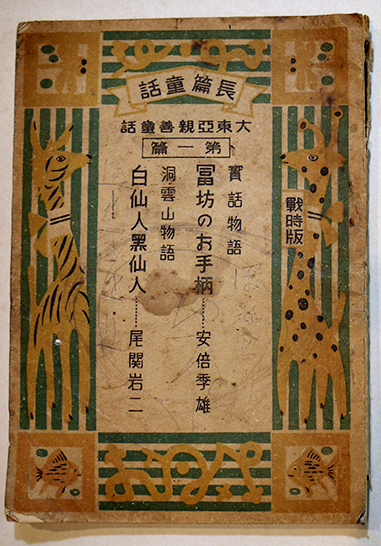 話童篇長
話童善親亞東大
篇一第
戰時版
實話物語
冨坊のお手柄………安倍季雄
洞雲山物語
白仙人黑仙人………尾関岩二